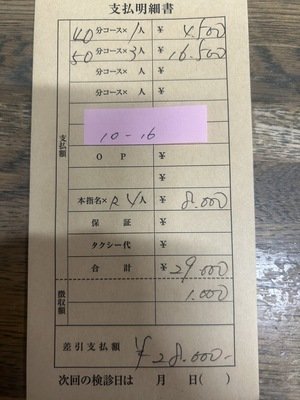 支払明細書
40分コース×1人 ¥4.500
50分コース×3人 ¥16.500
分コース× 人 ¥
分コース× 人 ¥
10-16
支払額
OP ¥
¥
本指名×R4人 ¥8.000
保証 ¥
タクシー代 ¥
合計 ¥29.000
徴収額
1.000
差引支払額 ¥28.000-
次回の検診日は 月 日( )